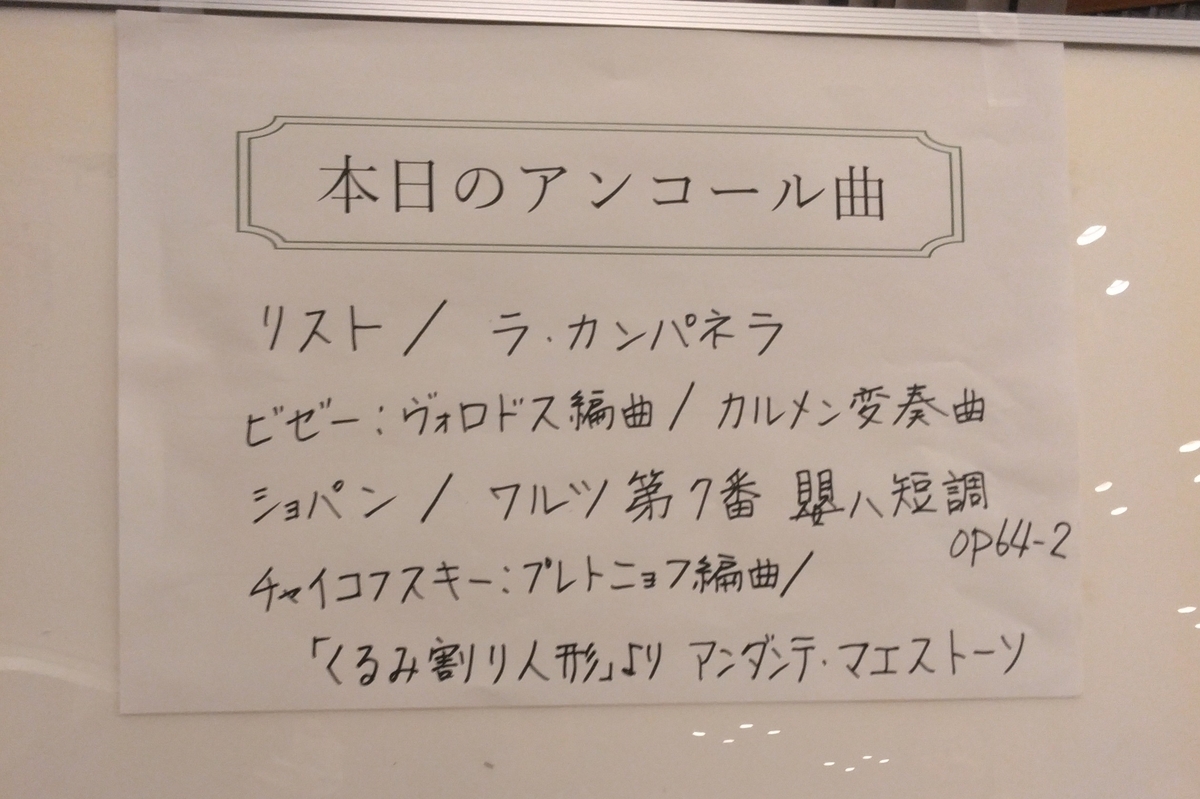 本日のアンコール曲
リスト / ラ・カンパネラ
ビゼー:ヴォロドス編曲 / カルメン変奏曲
ショパン / ワルツ 第7番 嬰ハ短調
op64-2
チャイコフスキー:プレトニョフ編曲/
「くるみ割り人形」より アンダンテ・マエストーソ